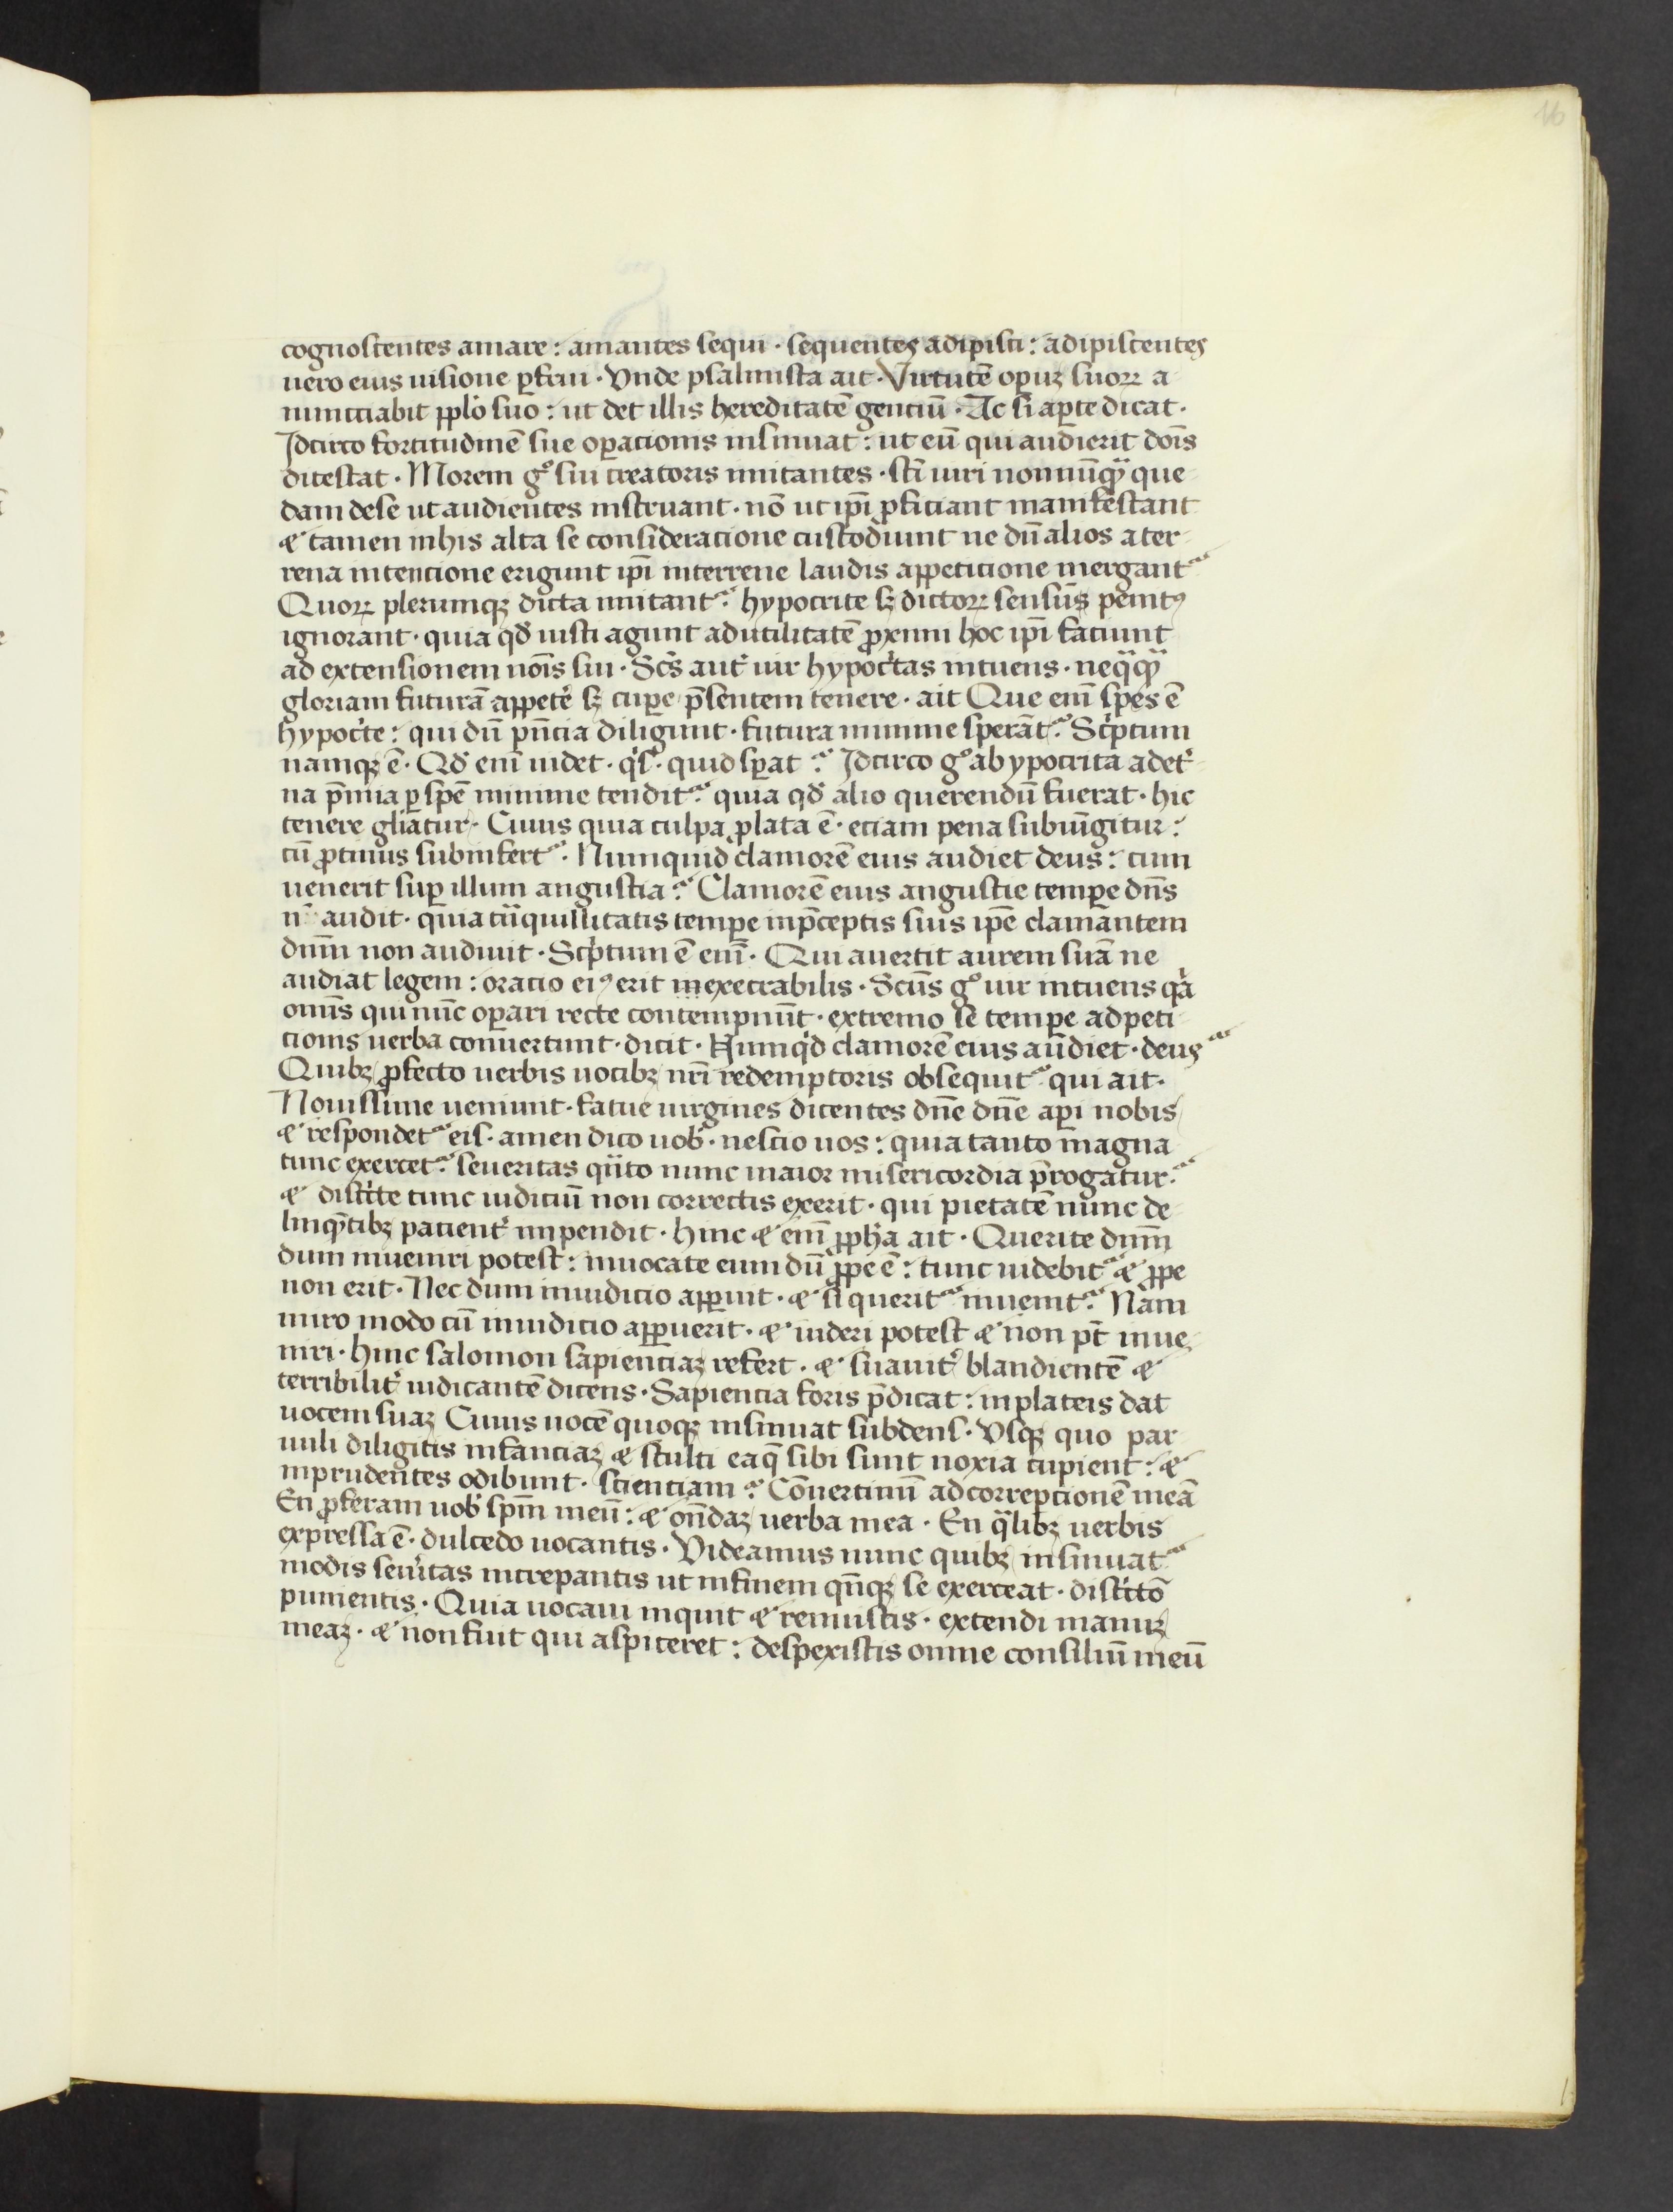 16
cognoscentes amare: amantes sequi · sequentes adipisci: adipiscentes
uero eius uisione ꝑfrui · Vnde psalmista ait · Virtutē opuꝫ suoꝝ a
nunctiabit pplo suo: ut det illis hereditatē genciū · Ac si aꝑte dicat ·
Idcirco fortitudinē sue oꝑacionis insinuat: ut eū qui audierit dois
ditescat · Morem gͦ sui creatoris imitantes · scī uiri nonnūqͣ que
dam de se ut audientes instruant · nō ut ipi ꝓficiant manifestant
et tamen in his alta se consideracione custodiunt ne dū alios a ter
rena intencione erigunt ipi in terrene laudis appeticione mergantᷣ
Quoꝝ plerumqꝫ dicta imitantᷣ hypocrite sꝫ dictoꝝ sensus penitꝰ
ignorant · quia qd iusti agunt ad utilitatē ꝓximi hoc ipi faciunt
ad extensionem nois sui · Scs aut uir hypocritas intuens · neqͣqͣ
gloriam futurā appete sꝫ cuꝑe p̄sentem tenere · ait Que eni spes ē
hypocte: qui dū pn̄cia diligunt · futura minime sperātᷣ Scptum
namqꝫ ē · Qd eni uidet · qs · quid sꝑat Idcirco gͦ ab ypocrita ad et
na p̄mia ꝑ spē minime tenditᷣ quia qd alio querendū fuerat · hic
tenere gliatur · Cuius quia culpa ꝓlata ē · eciam pena subiūgitur:
cū ꝓtinus subinfertᷣ · Numquid clamorē eius audiet deus: cum
uenerit suꝑ illum angustia Clamorē eius angustie temꝑe dns
n audit · quia tͣnquillitatis temꝑe in p̄ceptis suis ipe clamantem
dnm non audiuit · Scptum ē eni · Qui auertit aurem suā ne
audiat legem: oracio eiꝰ erit inexecrabilis · Scus gͦ uir intuens qa
omīs qui nūc oꝑari recte contempnūt · extremo se temꝑe ad peti
cionis uerba conuertunt · dicit · Numqd clamorē eius audiet · deus
Quibꝫ ꝓfecto uerbis uocibꝫ nri redemptoris obsequitᷣ qui ait ·
Nouissime ueniunt · fatue uirgines dicentes dne dne aꝑi nobis
et respondetᷣ eis · amen dico uob · nescio uos: quia tanto magna
tunc exercetᷣ seueritas qͣnto nunc maior misericordia p̄rogatur
et districte tunc iudiciū non correctis exerit · qui pietatē nunc de
linqͤtibꝫ pacient impendit · Hinc et eni ꝓpha ait · Querite dnm
dum inueniri potest: inuocate eum dū ꝓpe ē: tunc uidebitᷣ et ꝓpe
non erit · Nec dum in iudicio apparuit · et si queritᷣ inuenitᷣ Nam
miro modo cū in iudicio apparuerit · et uideri potest et non pt inue
niri · Hinc salomon sapienciaꝫ refert · et suauit blandientē et
terribilit iudicantē dicens · Sapiencia foris p̄dicat: in plateis dat
uocem suaꝫ Cuius uocē quoqꝫ insinuat subdens · Vsqꝫ quo par
uuli diligitis infanciaꝫ et stulti ea q̄ sibi sunt noxia cupient: et
inprudentes odibunt · scienciam Cōuertimī ad correpcionē meā
En ꝓferam uob spm meū: et on̄daꝫ uerba mea · En qͣlibꝫ uerbis
expressa ē · dulcedo uocantis · Videamus nunc quibꝫ insinuatᷣ
modis seuitas increpantis ut in finem qn̄qꝫ se exerceat · districtō
punientis · Quia uocaui inquit et renuistis · extendi manuꝫ
meaꝫ · et non fuit qui aspiceret: despexistis omne consiliū meū